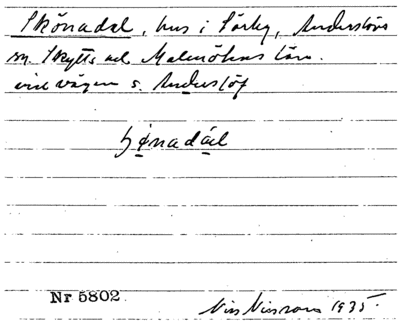 Skönadal, hus i Särby, Anderslövs
sn. Skytts hd Malmöhus län.
vid vägen s. Anderslöf
ꜧønadál
Nr 5802
Nils Nilsson 1935